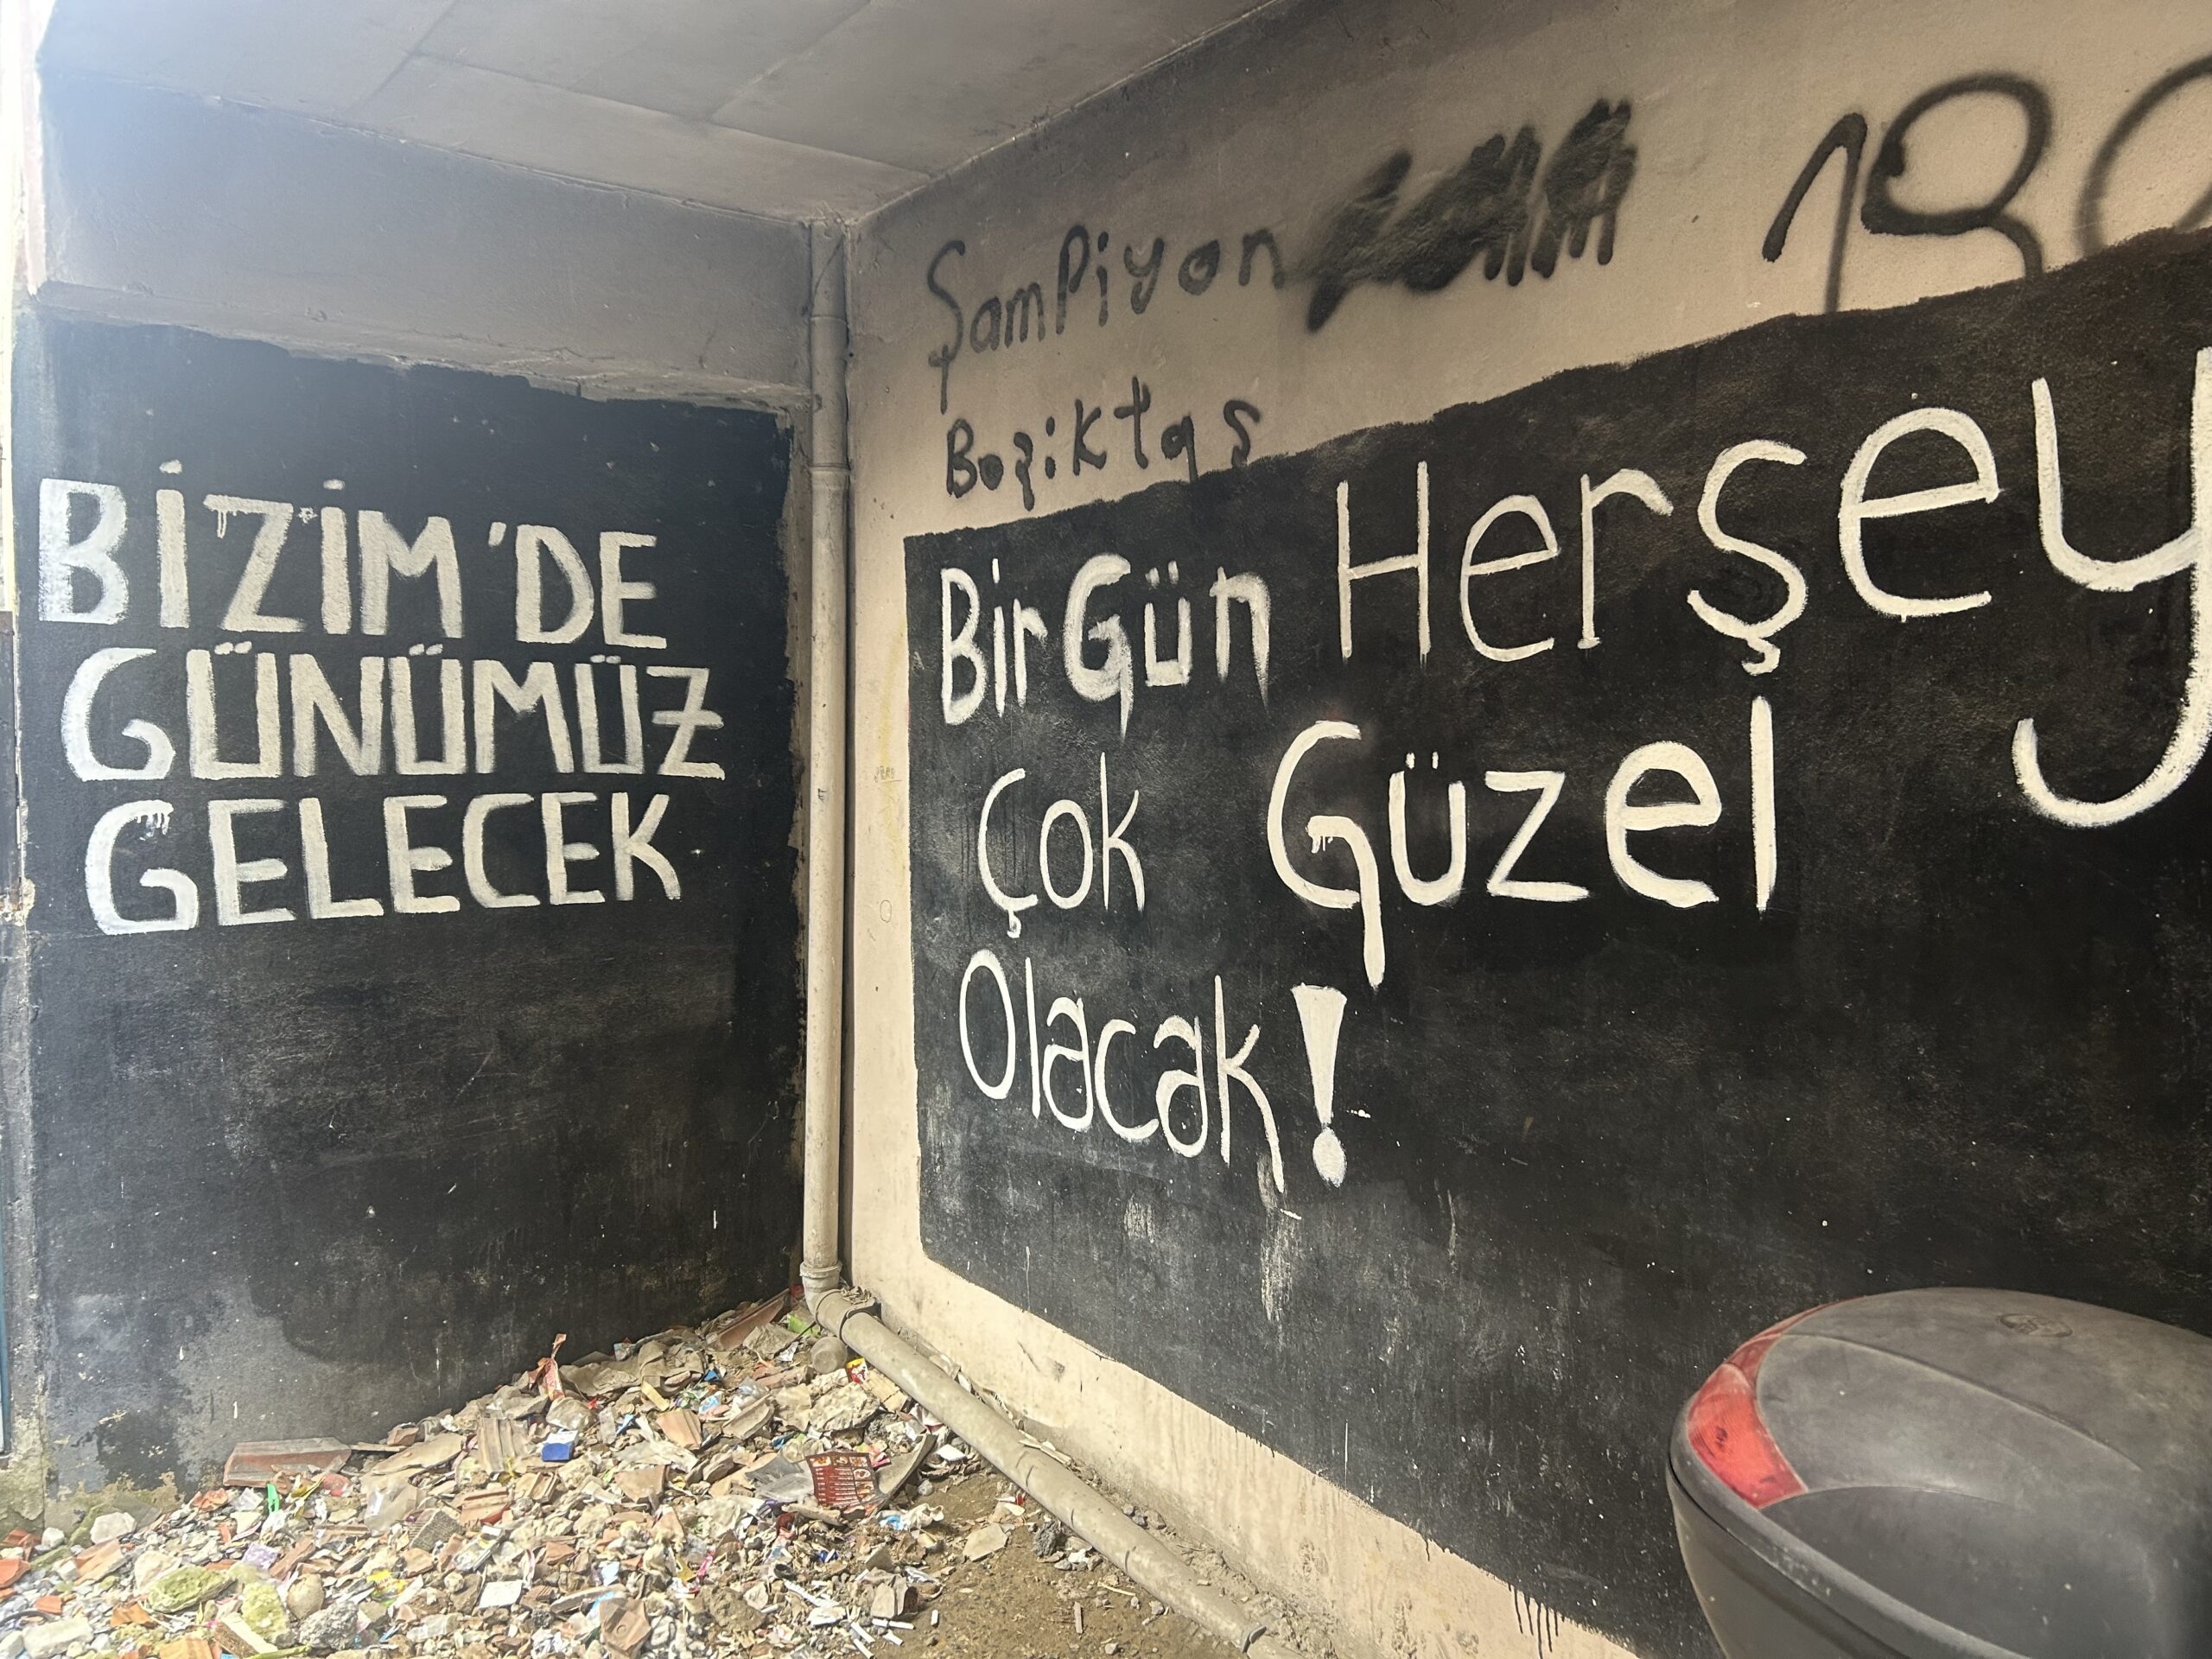 BİZİM'DE
GÜNÜMÜZ
GELECEK
Şampiyon
Beşiktaş
Bir Gün Herşey
Çok Güzel
Olacak!